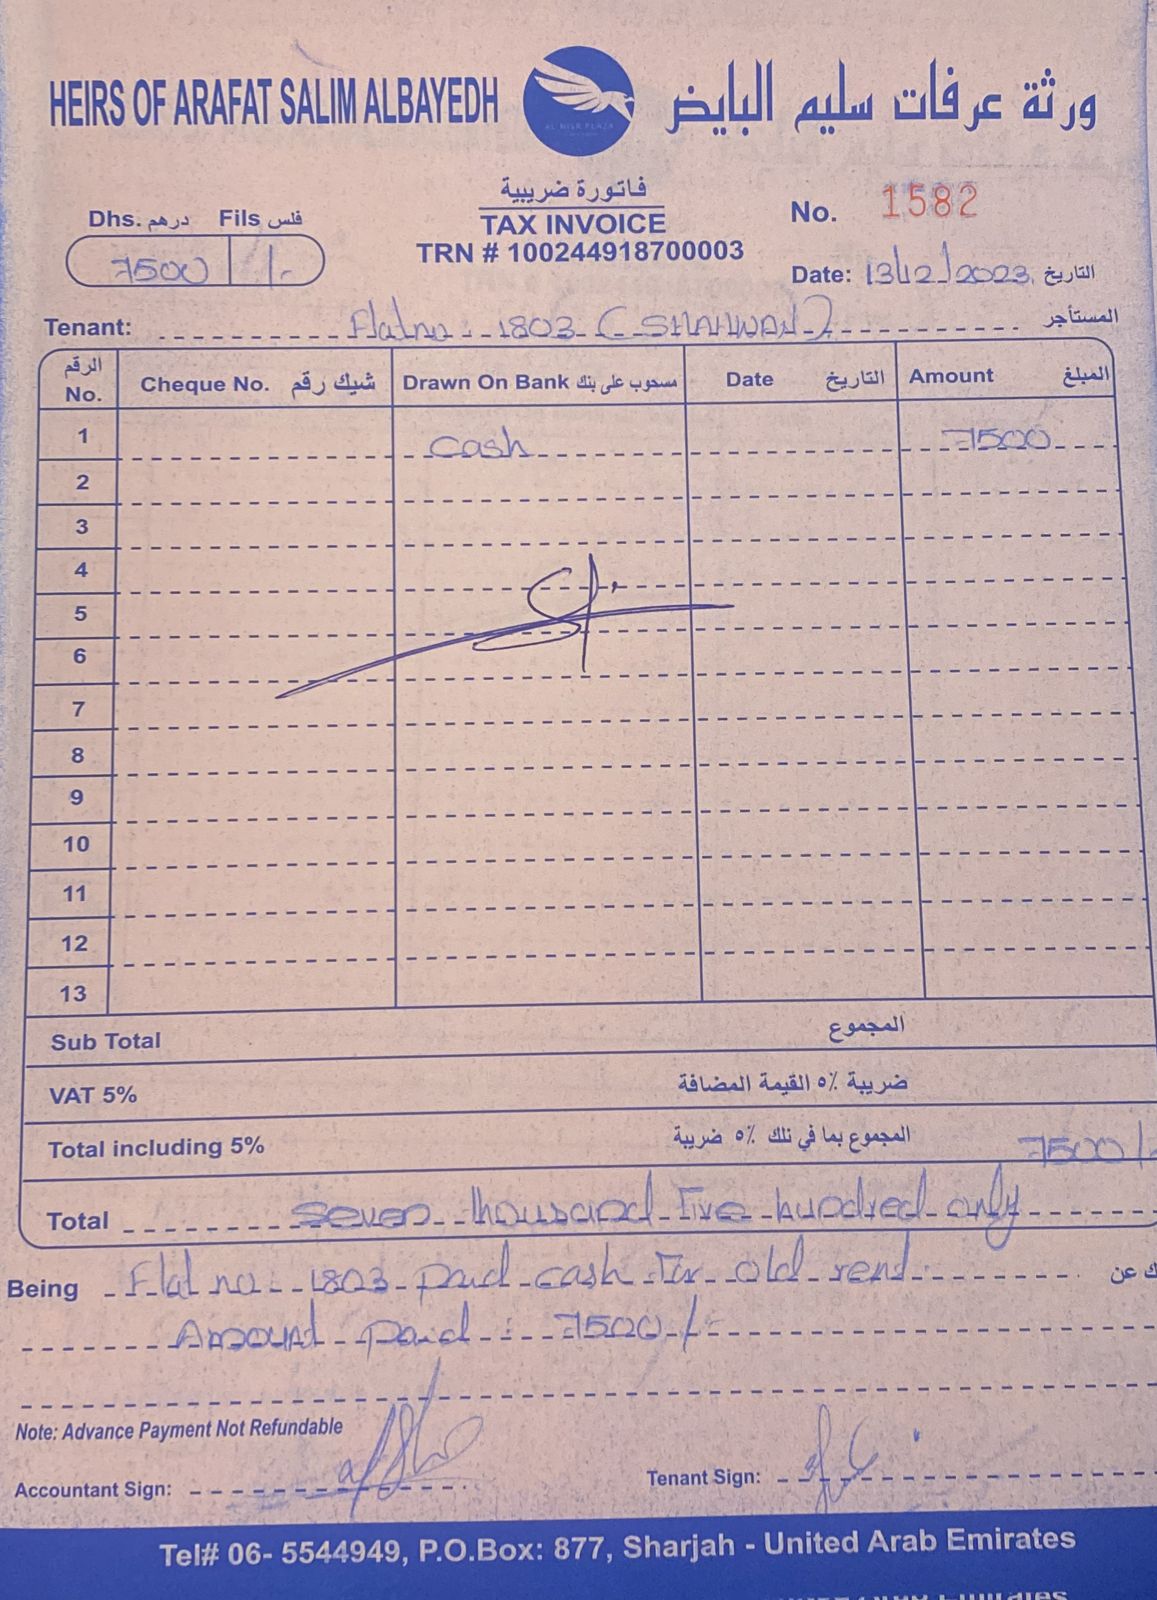 HEIRS OF ARAFAT SALIM ALBAYEDH
AL NISR PLAZA
ورثة عرفات سليم البايض
فاتورة ضريبية
TAX INVOICE
TRN # 100244918700003
No. 1582
Dhs. درهم Fils فلس
7500 /-
Date: 13/12/2023 التاريخ
Tenant: Flat no: 1803 (SHAHWAN) المستأجر
الرقم No. Cheque No. شيك رقم Drawn On Bank مسحوب على بنك Date التاريخ Amount المبلغ
1 cash 7500
2
3
4
5
6
7
8
9
10
11
12
13
Sub Total المجموع
VAT 5% ضريبة ٥٪ القيمة المضافة
Total including 5% المجموع بما في تلك ٥٪ ضريبة 7500/-
Total seven thousand Five hundred only
Being Flat no: 1803 paid cash for old rent. ك عن
Amount paid: 7500/-
Note: Advance Payment Not Refundable
Accountant Sign: Tenant Sign:
Tel# 06- 5544949, P.O.Box: 877, Sharjah - United Arab Emirates